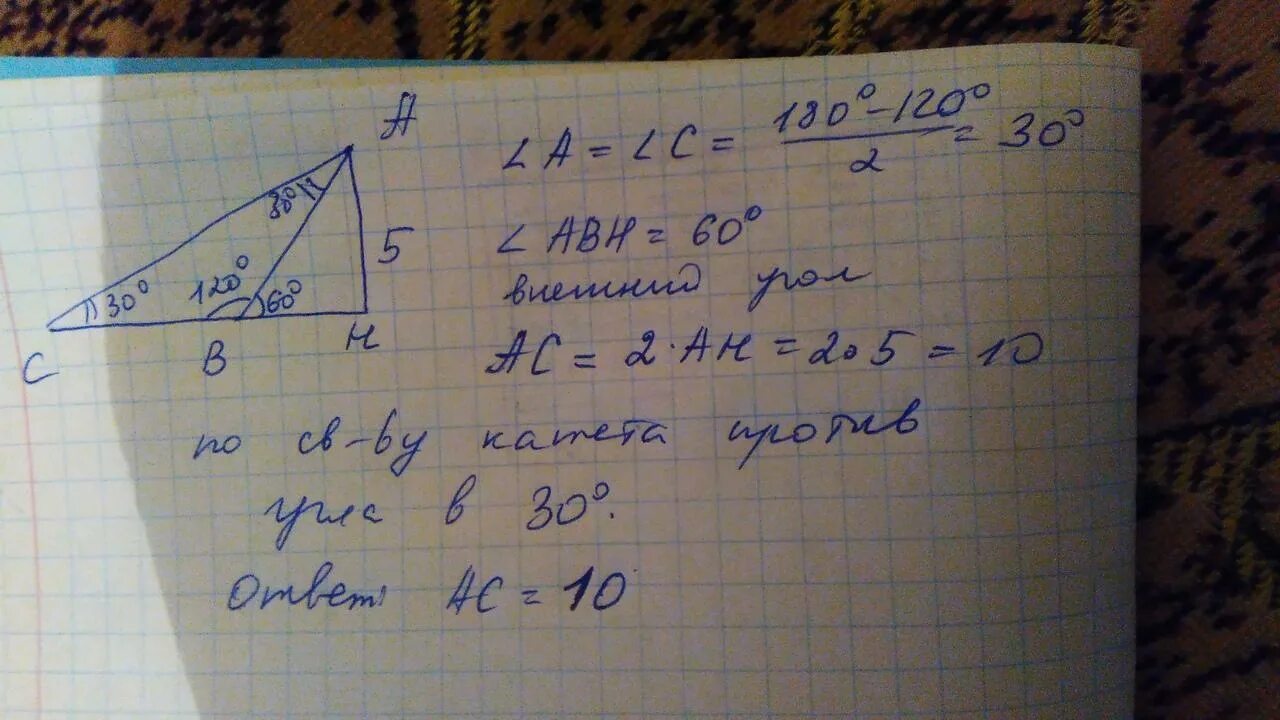 A
30°
5
30°
120°
60°
C
B
H
∠A = ∠C = (180° − 120°)/2 = 30°
∠ABH = 60°
внешний угол
AC = 2·AH = 2·5 = 10
по св-ву катета против
угла в 30°.
Ответ: AC = 10